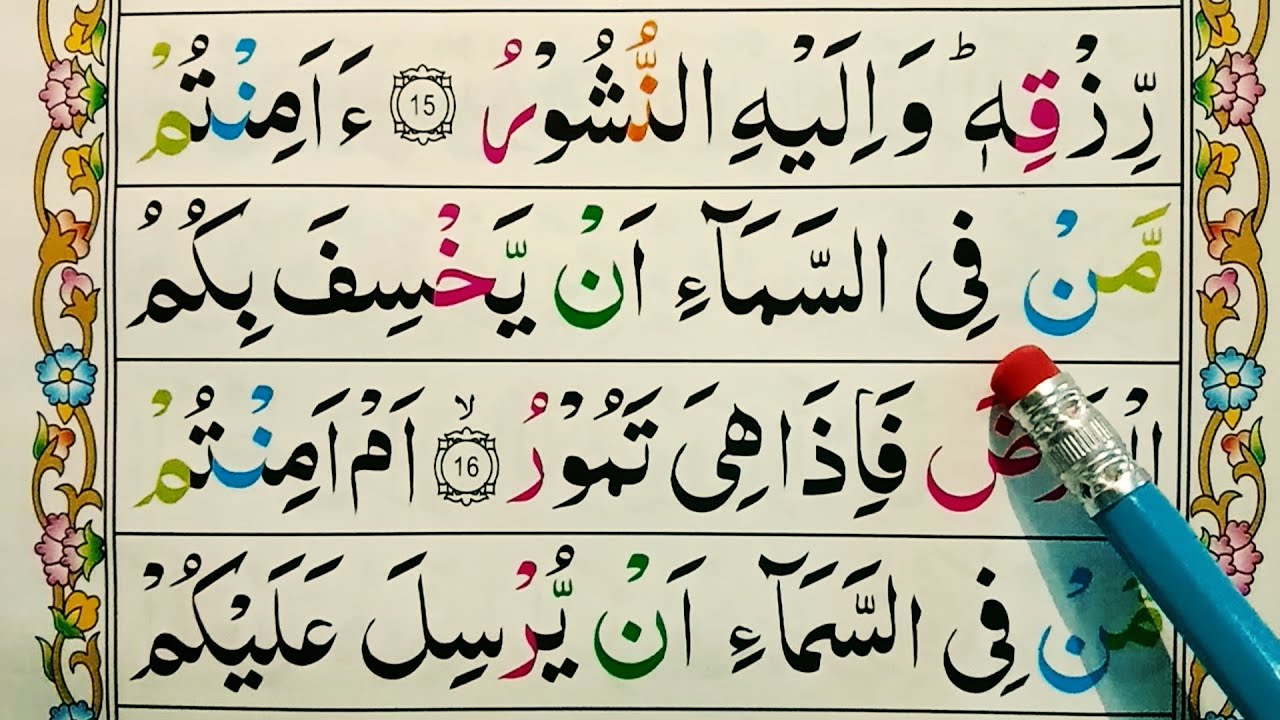 رِّزْقِهٖ ؕ وَاِلَيْهِ النُّشُوْرُ 15 ءَاَمِنْتُمْ
مَّنْ فِى السَّمَآءِ اَنْ يَّخْسِفَ بِكُمُ
الْاَرْضَ فَاِذَا هِىَ تَمُوْرُ ۙ 16 اَمْ اَمِنْتُمْ
مَّنْ فِى السَّمَآءِ اَنْ يُّرْسِلَ عَلَيْكُمْ